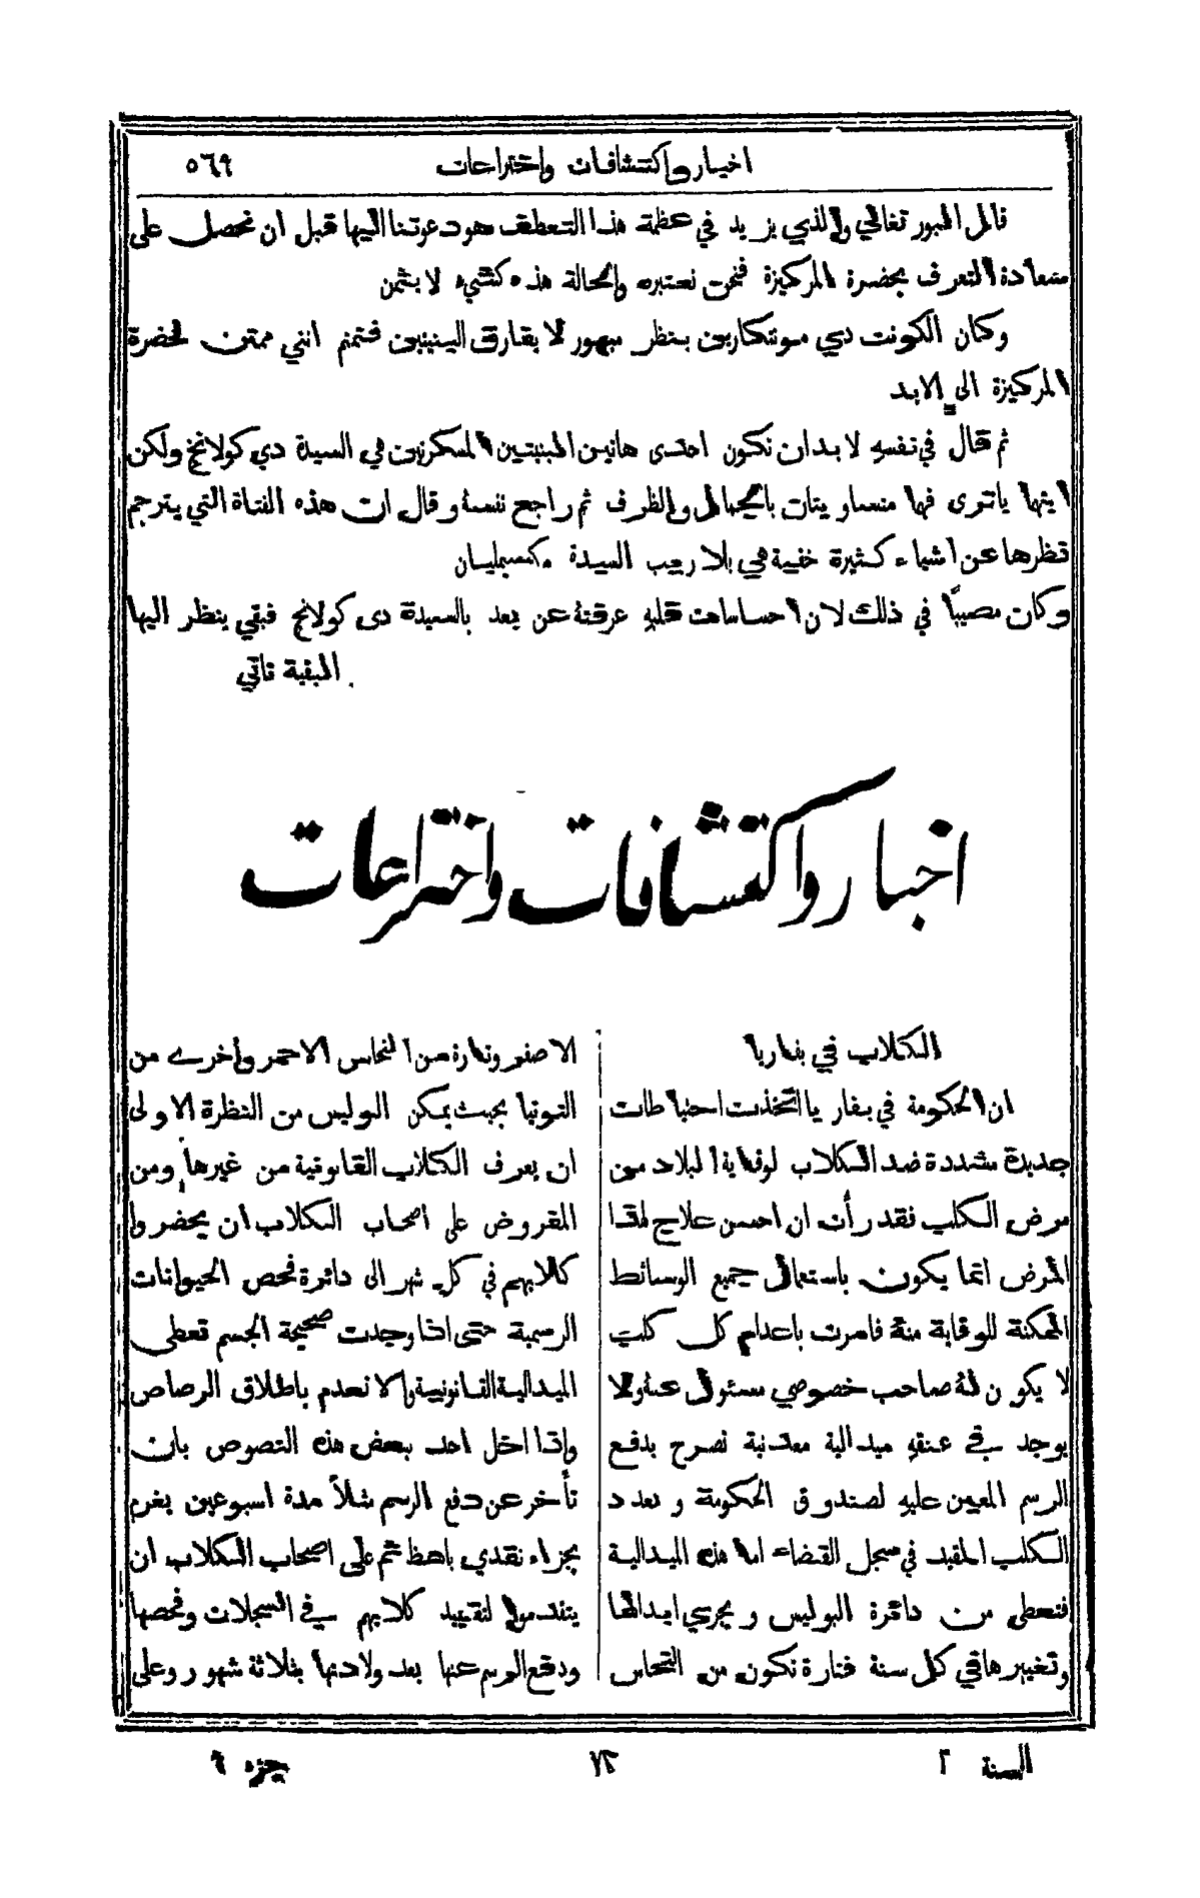 اخبار واكتشافات واختراعات
٥٦٩
والذي يزيد في عظمة هذا التعطف هو دعوتنا اليها قبل ان نحصل على
سعادة التعرف بحضرة المركيزة فنحن نعتبره والحالة هذه كشيء لا يثمن
وكان الكونت دي مونتكاربن ينظر مبهور لا يفارق البنيتين فتمتم انني ممتن لحضرة
المركيزة الى الابد
ثم قال في نفسه لا بد ان تكون احدى هاتين المنيتين المسكرتين هي السيدة دي كولانج ولكن
ايتها يا ترى فها متساويتان بالجمال والظرف ثم راجع نفسه وقال ان هذه الفتاة التي يترجم
نظرها عن اشياء كثيرة خفية هي بلا ريب السيدة مكسيمليان
وكان مصيبًا في ذلك لان احساسات قلبه عرفته عن بعد بالسيدة دي كولانج فبقي ينظر اليها
البقية تاتي
اخبار واكتشافات واختراعات
الكلاب في بفاريا
ان الحكومة في بفاريا اتخذت احتياطات
جديدة مشددة ضد الكلاب لوقاية البلاد من
مرض الكلب فقد رأت ان احسن علاج لهذا
المرض انما يكون باستعمال جميع الوسائط
الممكنة للوقاية منه فامرت باعدام كل كلب
لا يكون له صاحب خصوصي مسئول عنه ولا
يوجد في عنقه ميدالية معدنية تصرح بدفع
الرسم المعين عليه لصندوق الحكومة وبعدد
الكلب المقيد في سجل القضاء اما هذه الميدالية
فتعطى من دائرة البوليس ويجري ابدالها
وتغييرها في كل سنة فتارة تكون من النحاس
الاصفر وتارة من النحاس الاحمر واخرى من
التوتيا بحيث يمكن البوليس من النظرة الاولى
ان يعرف الكلاب القانونية من غيرها ومن
المفروض على اصحاب الكلاب ان يحضروا
كلابهم في كل شهر الى دائرة فحص الحيوانات
الرسمية حتى اذا وجدت صحيحة الجسم تعطى
الميدالية القانونية والا تعدم باطلاق الرصاص
واذا اخل احد ببعض هذه النصوص بان
تأخر عن دفع الرسم مثلاً مدة اسبوعين يغرم
بجزاء نقدي باهظ ثم على اصحاب الكلاب ان
يتقدموا لتقييد كلابهم في السجلات وفحصها
ودفع الرسم عنها بعد ولادتها بثلاثة شهور وعلى
السنة ٢
٧٢
جزء ٩